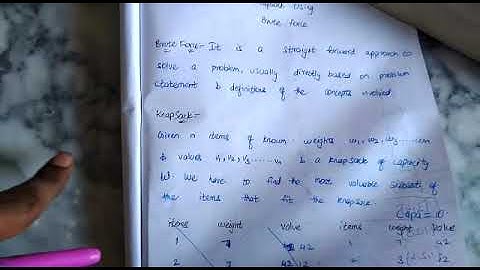 using
Brute force
Brute Force:- It is a straight forward approach to
solve a problem, usually directly based on problem
statement & definitions of the concepts involved.
Knapsack:-
Given n items of known weights w1, w2, w3......wn
& values v1, v2, v3......vn & a knapsack of capacity
W. We have to find the most valuable subsets of
the items that fit the knapsack.
Capa = 10.
items weight value items weight value
1 7 42 1 7 42
2 12 2 3 12